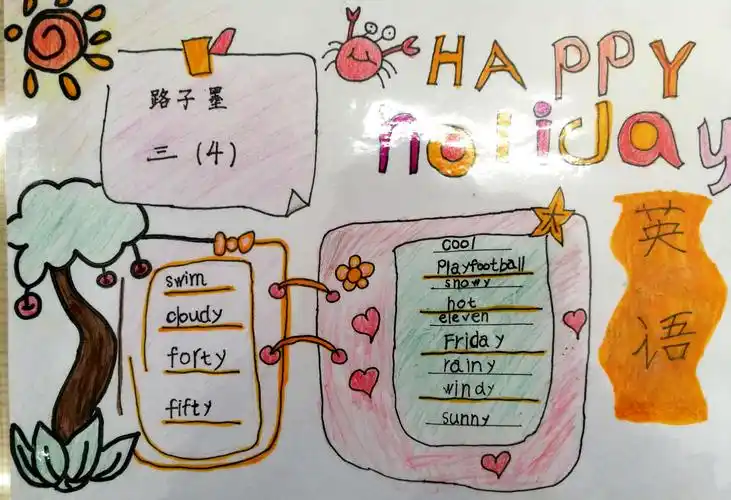 HAPPY
holiday
路子墨
三 (4)
swim
cloudy
forty
fifty
cool
Playfootball
snowy
hot
eleven
Friday
rainy
windy
sunny
英
语